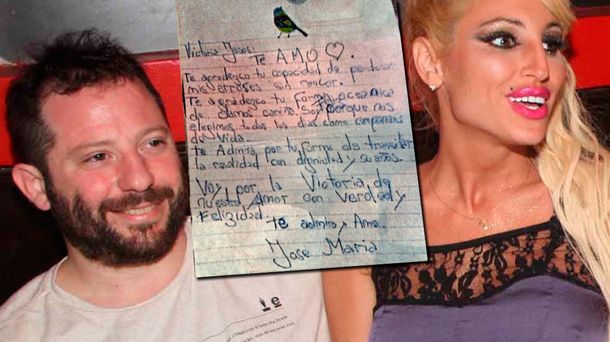 Victoria, Jesús:
TE AMO ♡.
Te agradezco tu capacidad de perdonar
mis errores sin rencor.
Te agradezco tu forma oceánica
de darnos cariño. Soy Feliz porque nos
elegimos todos los días como compañeros
de Vida.
Te Admiro por tu forma de transitar
la realidad con dignidad y sueños.
Voy por la Victoria de
nuestro Amor con Verdad y
Felicidad.
Te admiro y Amo.
Jose Maria
1e